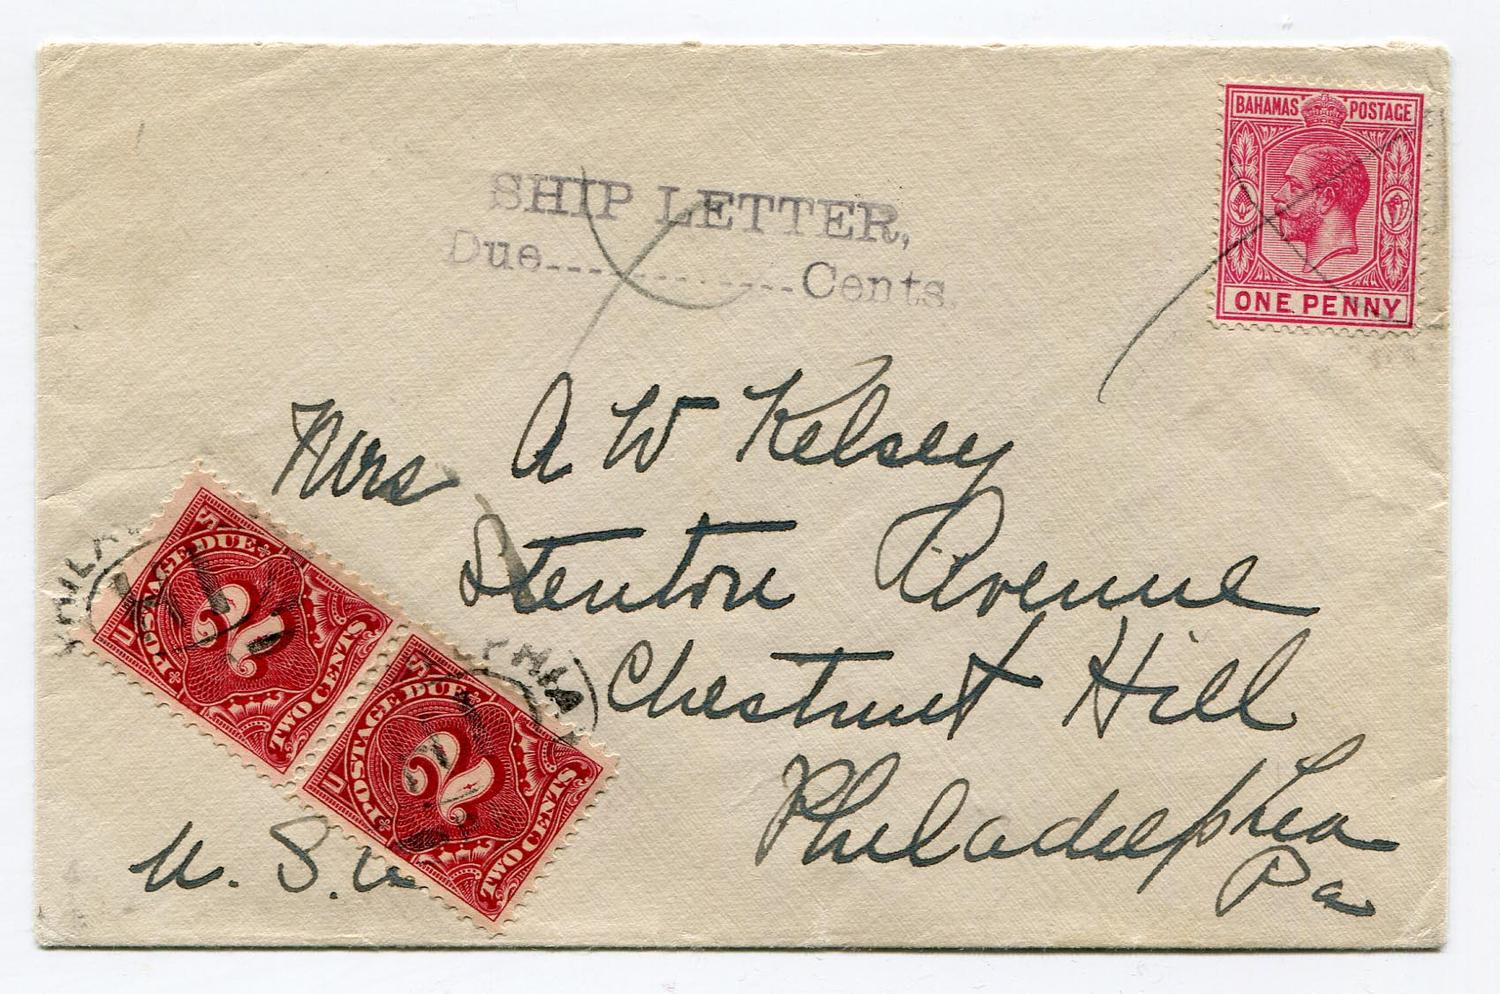 BAHAMAS POSTAGE
ONE PENNY
SHIP LETTER,
Due.............Cents.
Mrs A W Kelsey
Stenton Avenue
Chestnut Hill
Philadelphia
Pa
U. S. A
U S
POSTAGE DUE
2
TWO CENTS
U S
POSTAGE DUE
2
TWO CENTS